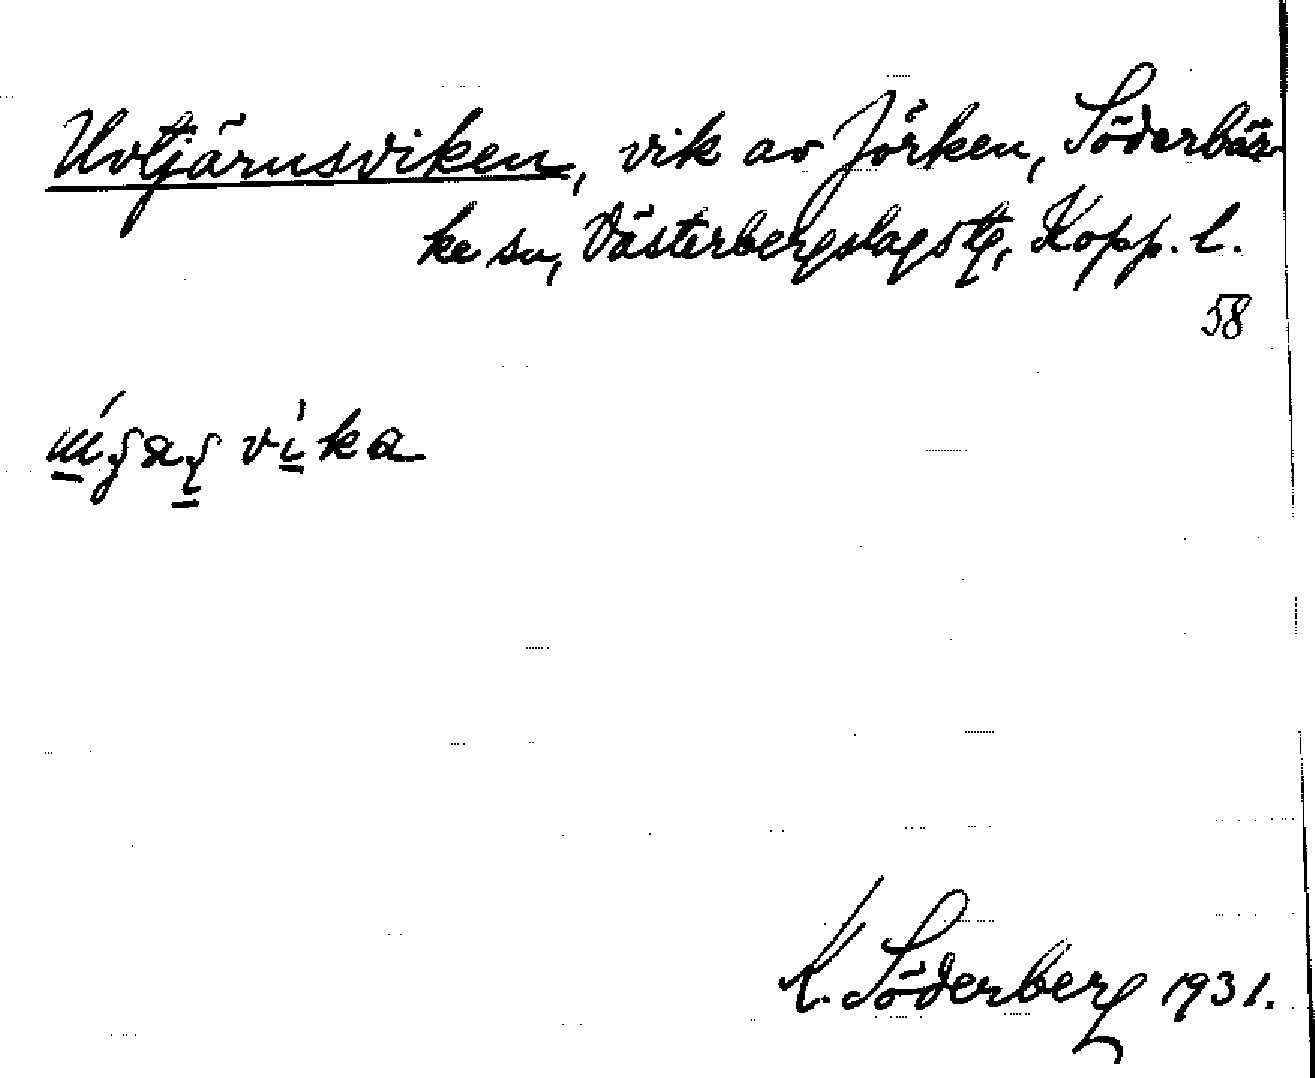 Uvtjärnsviken, vik av Jörken, Söderbär-
ke sn, Västerbergslags tg, Kopp. l.
58
vika
K. Söderberg 1931.